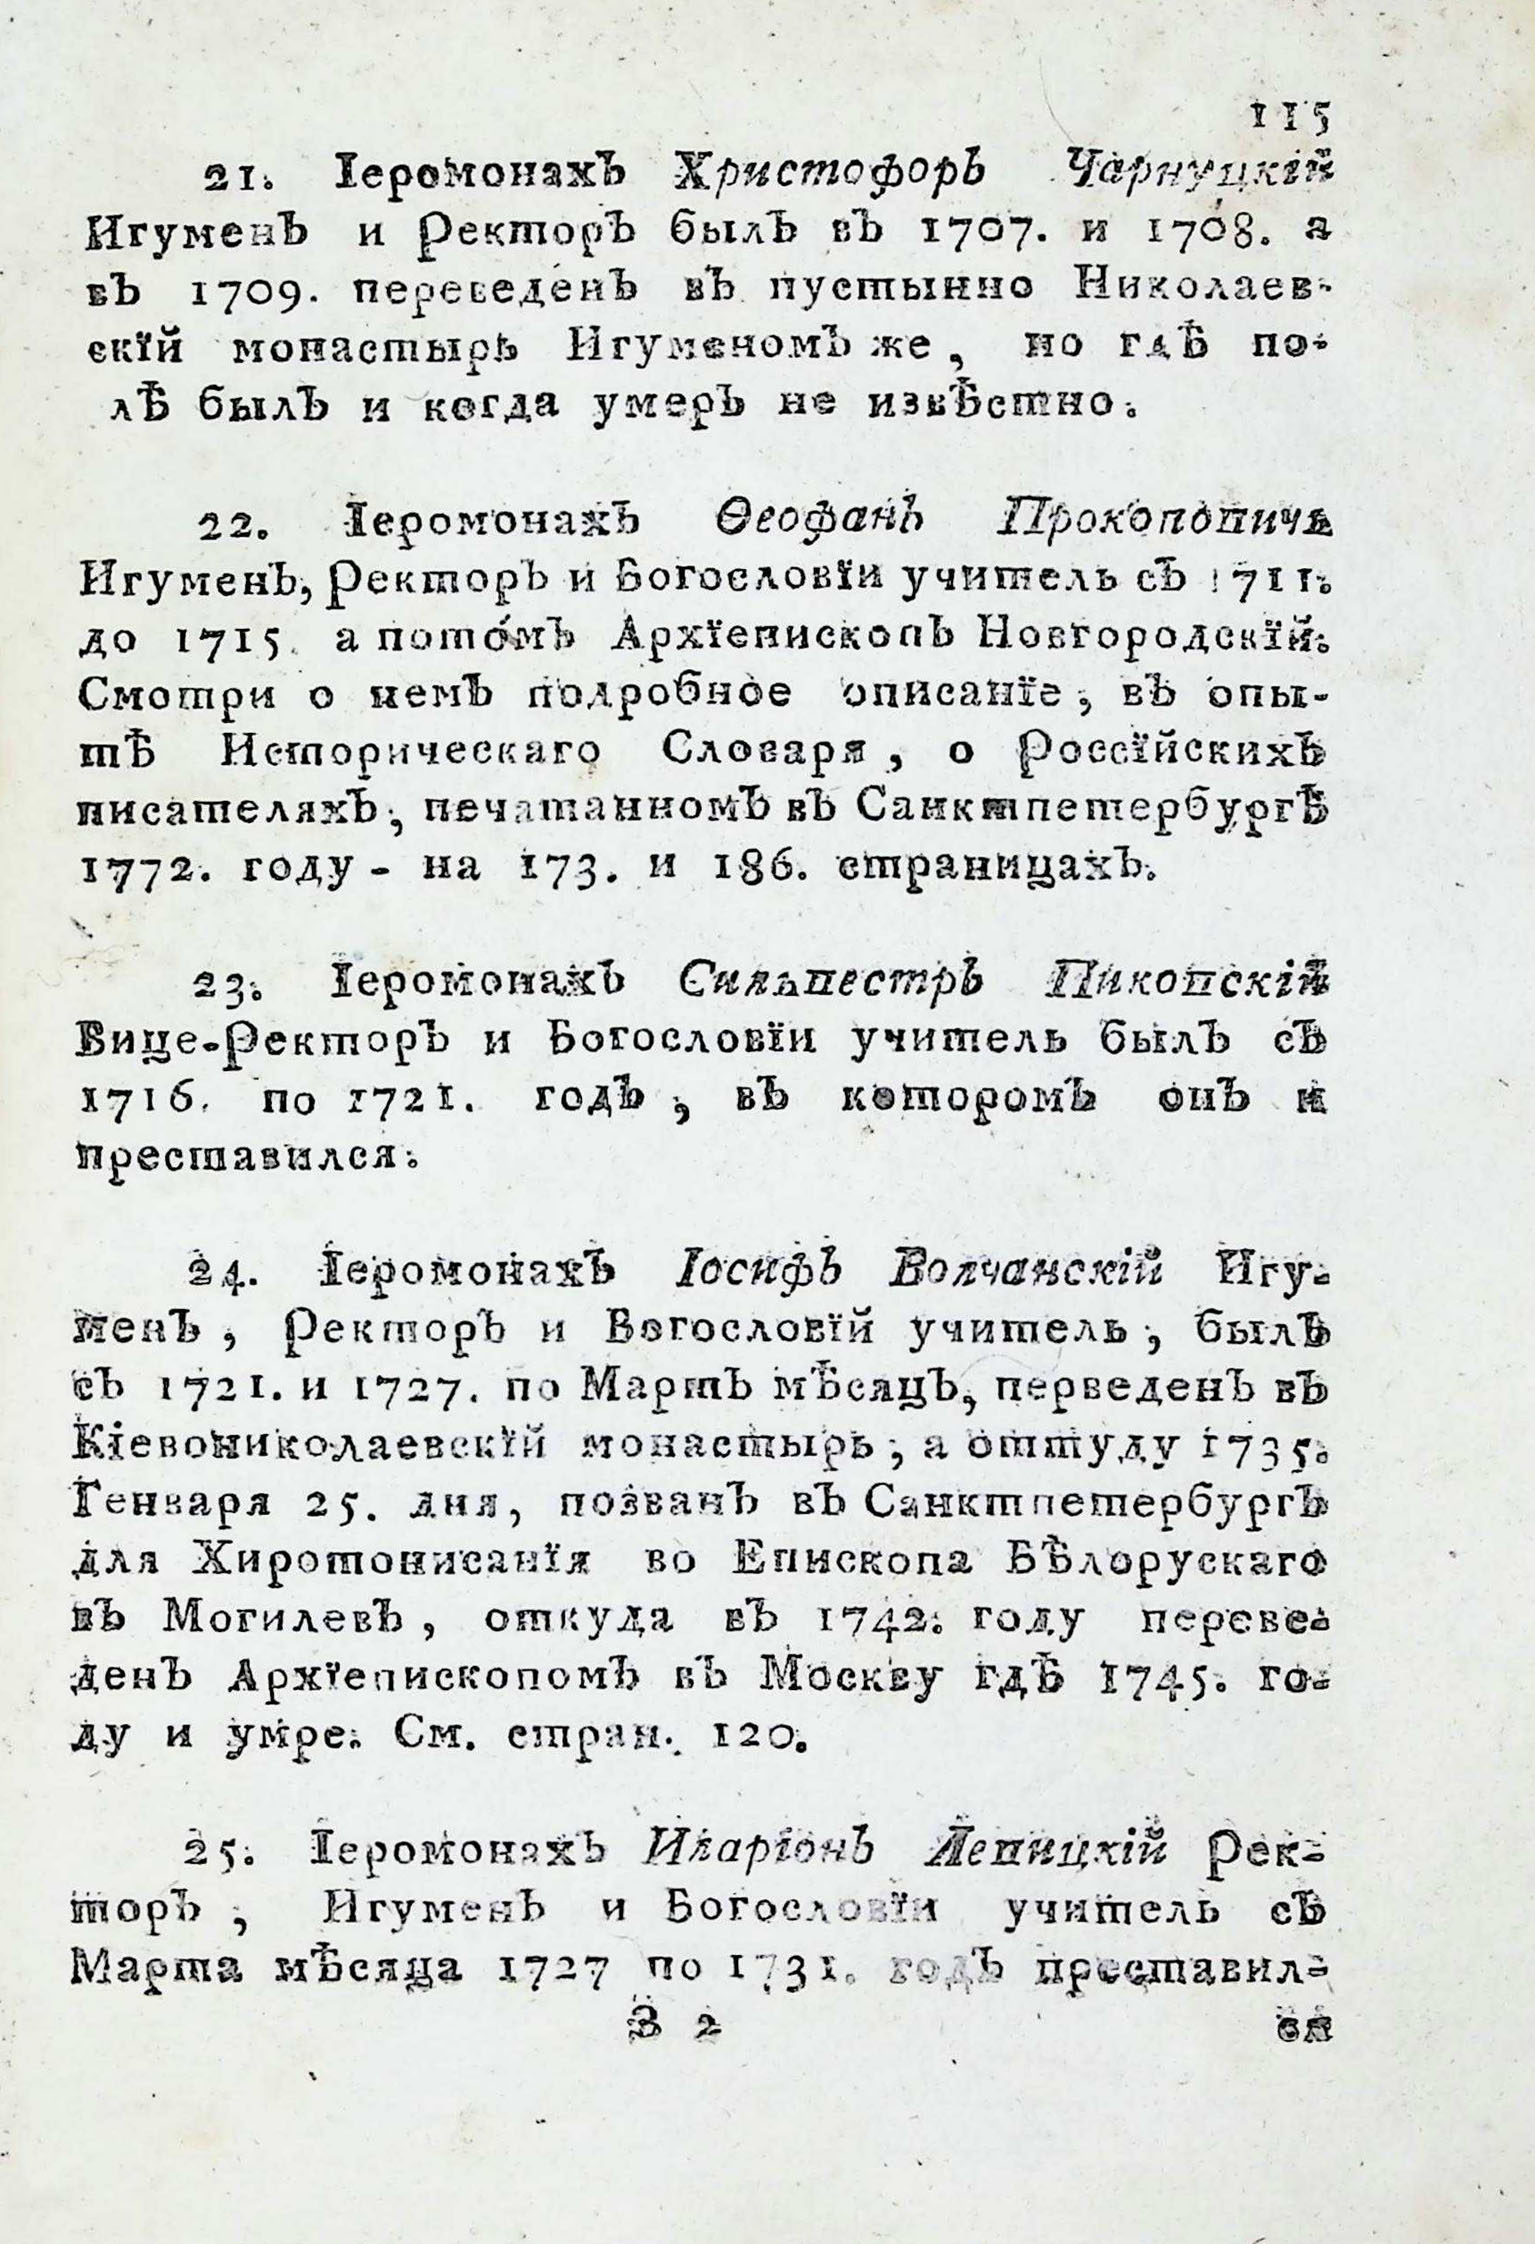 115
21. Іеромонахъ Христофоръ Чарнуцкій
Игуменъ и Ректоръ былъ въ 1707. и 1708. а
въ 1709. переведенъ въ пустынно Николаев-
скїй монастырь Игуменомъ же, но гдѣ по-
лѣ былъ и когда умеръ не извѣстно.
22. Іеромонахъ Ѳеофанъ Прокоповичь
Игуменъ, Ректоръ и Богословїи учитель съ 1711.
до 1715. а пото́мъ Архїепископъ Новгородскїй.
Смотри о немъ подробное описанїе, въ опы-
тѣ Историческаго Словаря, о Россїйскихъ
писателяхъ, печатанномъ въ Санктпетербургѣ
1772. году - на 173. и 186. страницахъ.
23. Іеромонахъ Сильвестръ Пиновскій
Вице-Ректоръ и Богословїи учитель былъ съ
1716. по 1721. годъ, въ которомъ онъ и
преставился.
24. Іеромонахъ Іосифъ Волчанскій Игу-
менъ, Ректоръ и Богословїй учитель, былъ
съ 1721. и 1727. по Мартъ мѣсяцъ, перведенъ въ
Кіевониколаевскїй монастырь, а оттуду 1735.
Генваря 25. дня, позванъ въ Санктпетербургъ
для Хиротонисанїя во Епископа Бѣлорускаго
въ Могилевъ, откуда въ 1742. году переве-
денъ Архїепископомъ въ Москву гдѣ 1745. го-
ду и умре. См. стран. 120.
25. Іеромонахъ Иларіонъ Левицкій Рек-
торъ, Игуменъ и Богословїи учитель съ
Марта мѣсяца 1727 по 1731. годъ преставил-
З 2 ся